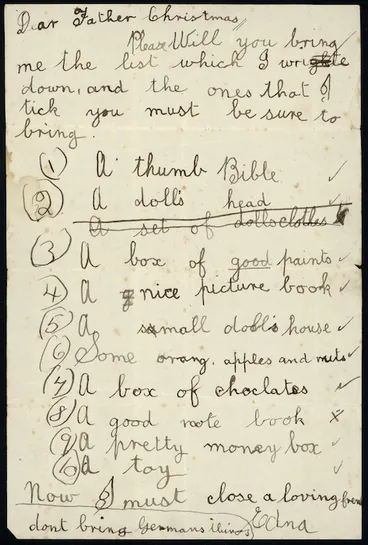 Dear Father Christmas,,
Please Will you bring
me the list which I write
down, and the ones that I
tick you must be sure to
bring.
(1) A thumb Bible ✓
(2) A dolls head ✓
A set of dolls clothes x
(3) A box of good paints ✓
(4) A nice picture book ✓
(5) A small doll's house ✓
(6) Some orang, apples and nuts ✓
(7) A box of choclates ✓
(8) A good note book x
(9) A pretty money box ✓
(10) A toy ✓
Now I must close a loving
dont bring Germans things Edna